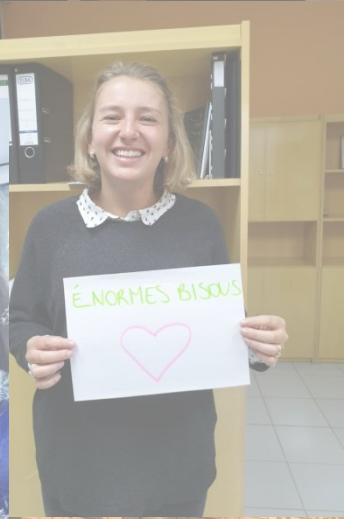 ÉNORMES BISOUS